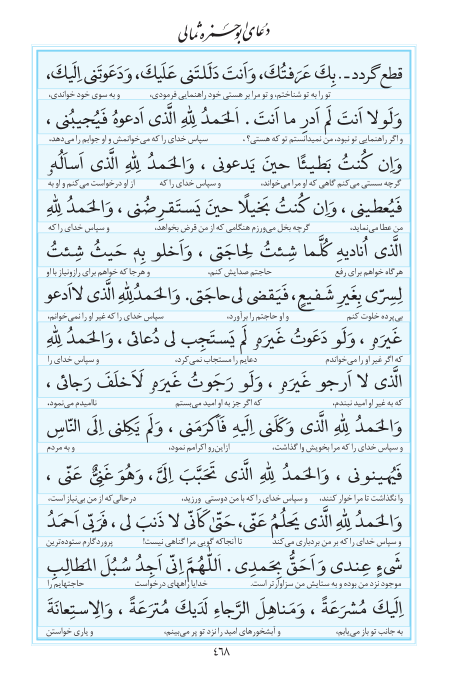 دعای ابوحمزه ثمالی
قطع گردد... بِكَ عَرَفتُكَ، وَاَنتَ دَلَلتَنی عَلَیكَ، وَدَعَوتَنی اِلَیكَ،
تو را به تو شناختم، و تو مرا بر هستی خود راهنمایی فرمودی، و به سوی خود خواندی،
وَلَولا اَنتَ لَم اَدرِ ما اَنتَ . اَلحَمدُ لِلّهِ الَّذی اَدعوهُ فَیُجیبُنی ،
و اگر راهنمایی تو نبود، من نمیدانستم تو که هستی؟ . سپاس خدای را که می‌خوانمش و او جوابم را می‌دهد،
وَاِن كُنتُ بَطیـًٔا حینَ یَدعونی ، وَالحَمدُ لِلّهِ الَّذی اَسأَلُهُ
گرچه سستی می‌کنم گاهی که او مرا می‌خواند، و سپاس خدای را که از او درخواست می‌کنم و او به
فَیُعطینی ، وَاِن كُنتُ بَخیلًا حینَ یَستَقرِضُنی ، وَالحَمدُ لِلّهِ
من عطا می‌نماید، گرچه بخل می‌ورزم هنگامی که از من قرض بخواهد، و سپاس خدای را که
الَّذی اُنادیهِ كُلَّما شِئتُ لِحاجَتی ، وَاَخلو بِهِ حَیثُ شِئتُ
هرگاه خواهم برای رفع حاجتم صدایش کنم، و هرجا که خواهم برای رازونیاز با او
لِسِرّی بِغَیرِ شَفیعٍ ، فَیَقضی لی حاجَتی. وَالحَمدُلِلّهِ الَّذی لااَدعو
بی‌پرده خلوت کنم و او حاجتم را برآورد، سپاس خدای را که غیر او را نمی‌خوانم،
غَیرَهُ ، وَلَو دَعَوتُ غَیرَهُ لَم یَستَجِب لی دُعائی ، وَالحَمدُ لِلّهِ
که اگر غیر او را می‌خواندم دعایم را مستجاب نمی‌کرد، و سپاس خدای را
الَّذی لا اَرجو غَیرَهُ ، وَلَو رَجَوتُ غَیرَهُ لَاَخلَفَ رَجائی ،
که به غیر او امید نبندم، که اگر جز به او امید می‌بستم ناامیدم می‌نمود،
وَالحَمدُ لِلّهِ الَّذی وَكَلَنی اِلَیهِ فَاَكرَمَنی ، وَلَم یَكِلنی اِلَی النّاسِ
و سپاس خدای را که مرا بخویش وا گذاشت، ازاین‌رو اکرامم نمود، و به مردم
فَیُهینونی ، وَالحَمدُ لِلّهِ الَّذی تَحَبَّبَ اِلَیَّ، وَهُوَ غَنِیٌّ عَنّی ،
وا نگذاشت تا مرا خوار کنند، و سپاس خدای را که با من دوستی ورزید، درحالی‌که از من بی‌نیاز است،
وَالحَمدُ لِلّهِ الَّذی یَحلُمُ عَنّی، حَتّیٰ كَاَنّی لا ذَنبَ لی ، فَرَبّی اَحمَدُ
و سپاس خدای را که بر من بردباری می‌کند تا آنجاکه گویی مرا گناهی نیست! پروردگارم ستوده‌ترین
شَیءٍ عِندی وَاَحَقُّ بِحَمدی . اَللّهُمَّ اِنّی اَجِدُ سُبُلَ المَطالِبِ
موجود نزد من بوده و به ستایش من سزاوارتر است. خدایا راههای درخواست حاجتهایم را
اِلَیكَ مُشرَعَةً ، وَمَناهِلَ الرَّجاءِ لَدَیكَ مُترَعَةً ، وَالاِستِعانَةَ
به جانب تو باز می‌یابم، و آبشخورهای امید را نزد تو پر می‌بینم، و یاری خواستن
٤٦٨